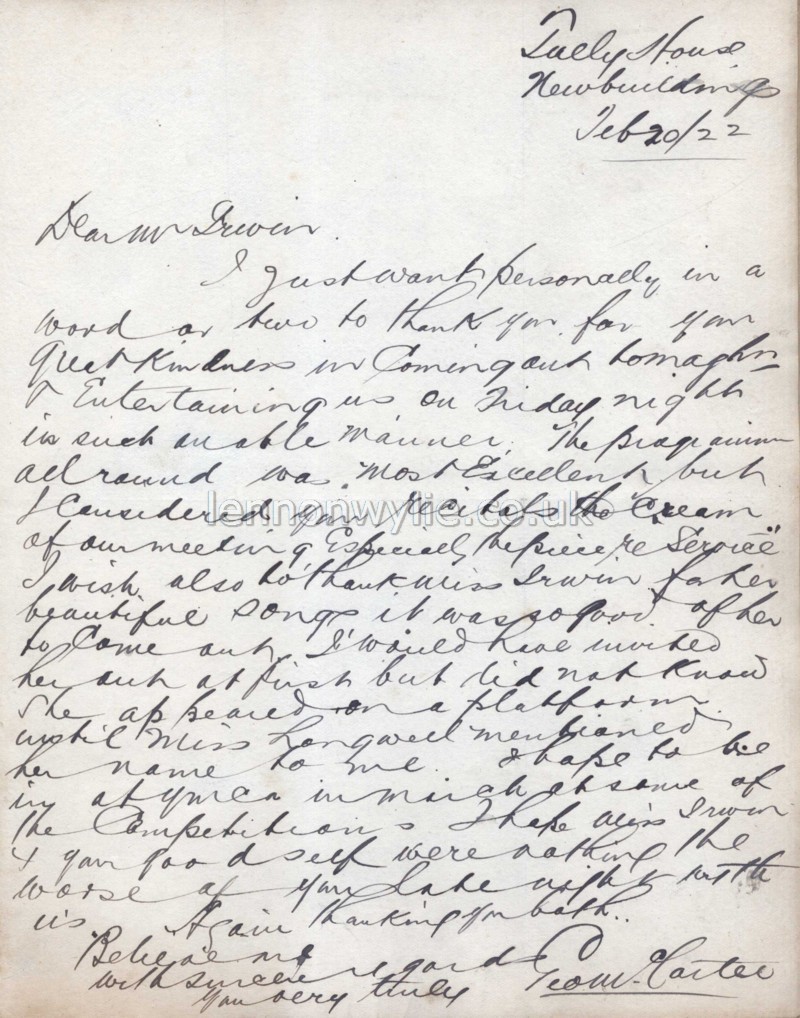 Tully House
Newbuildings
Feb 20/22
Dear Mr Irwin.
I just want personally in a
word or two to thank you for your
great kindness in coming out to
& Entertaining us on Friday night
in such an able manner. The programme
all round was most Excellent, but
I considered your recitals the "Cream
of our meeting Especially the piece re "Service"
I wish also to thank Miss Irwin for her
beautiful songs it was so good of her
to come out, I would have invited
her out at first but did not know
she appeared on a platform
until Miss Longwell mentioned
her name to me. I hope to be
in at YMCA in March at some of
the Competitions I hope Miss Irwin
& your good self were nothing the
worse of your late night with
us Again thanking you both..
Believe me
with sincere regards
you very truly
Geo M. Carter
lennonwylie.co.uk